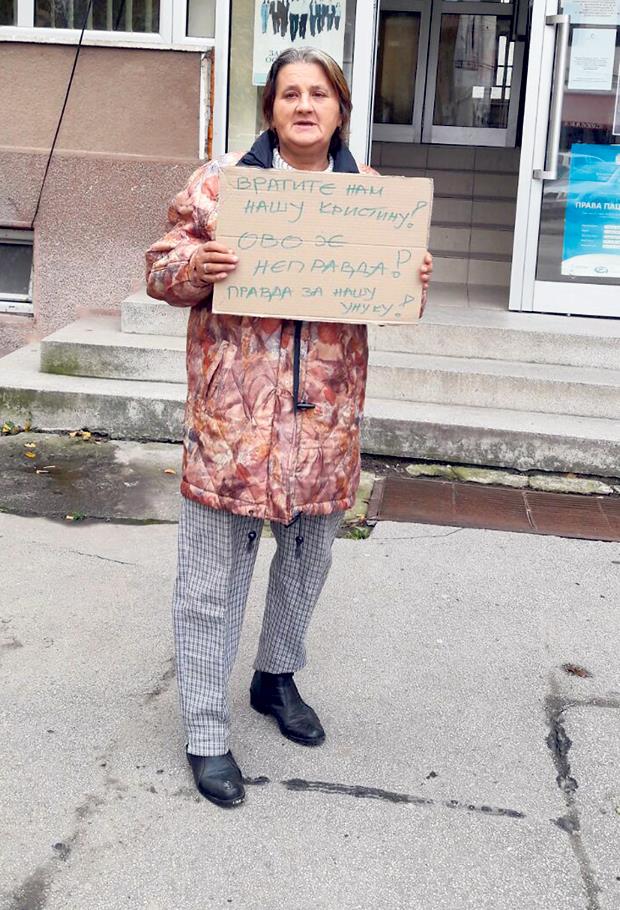 ЗА
ВРАТИТЕ НАМ
НАШУ КРИСТИНУ!
ОВО ЈЕ
НЕПРАВДА!
ПРАВДА ЗА НАШУ
УНУКУ!
ПРАВА ПАЦ